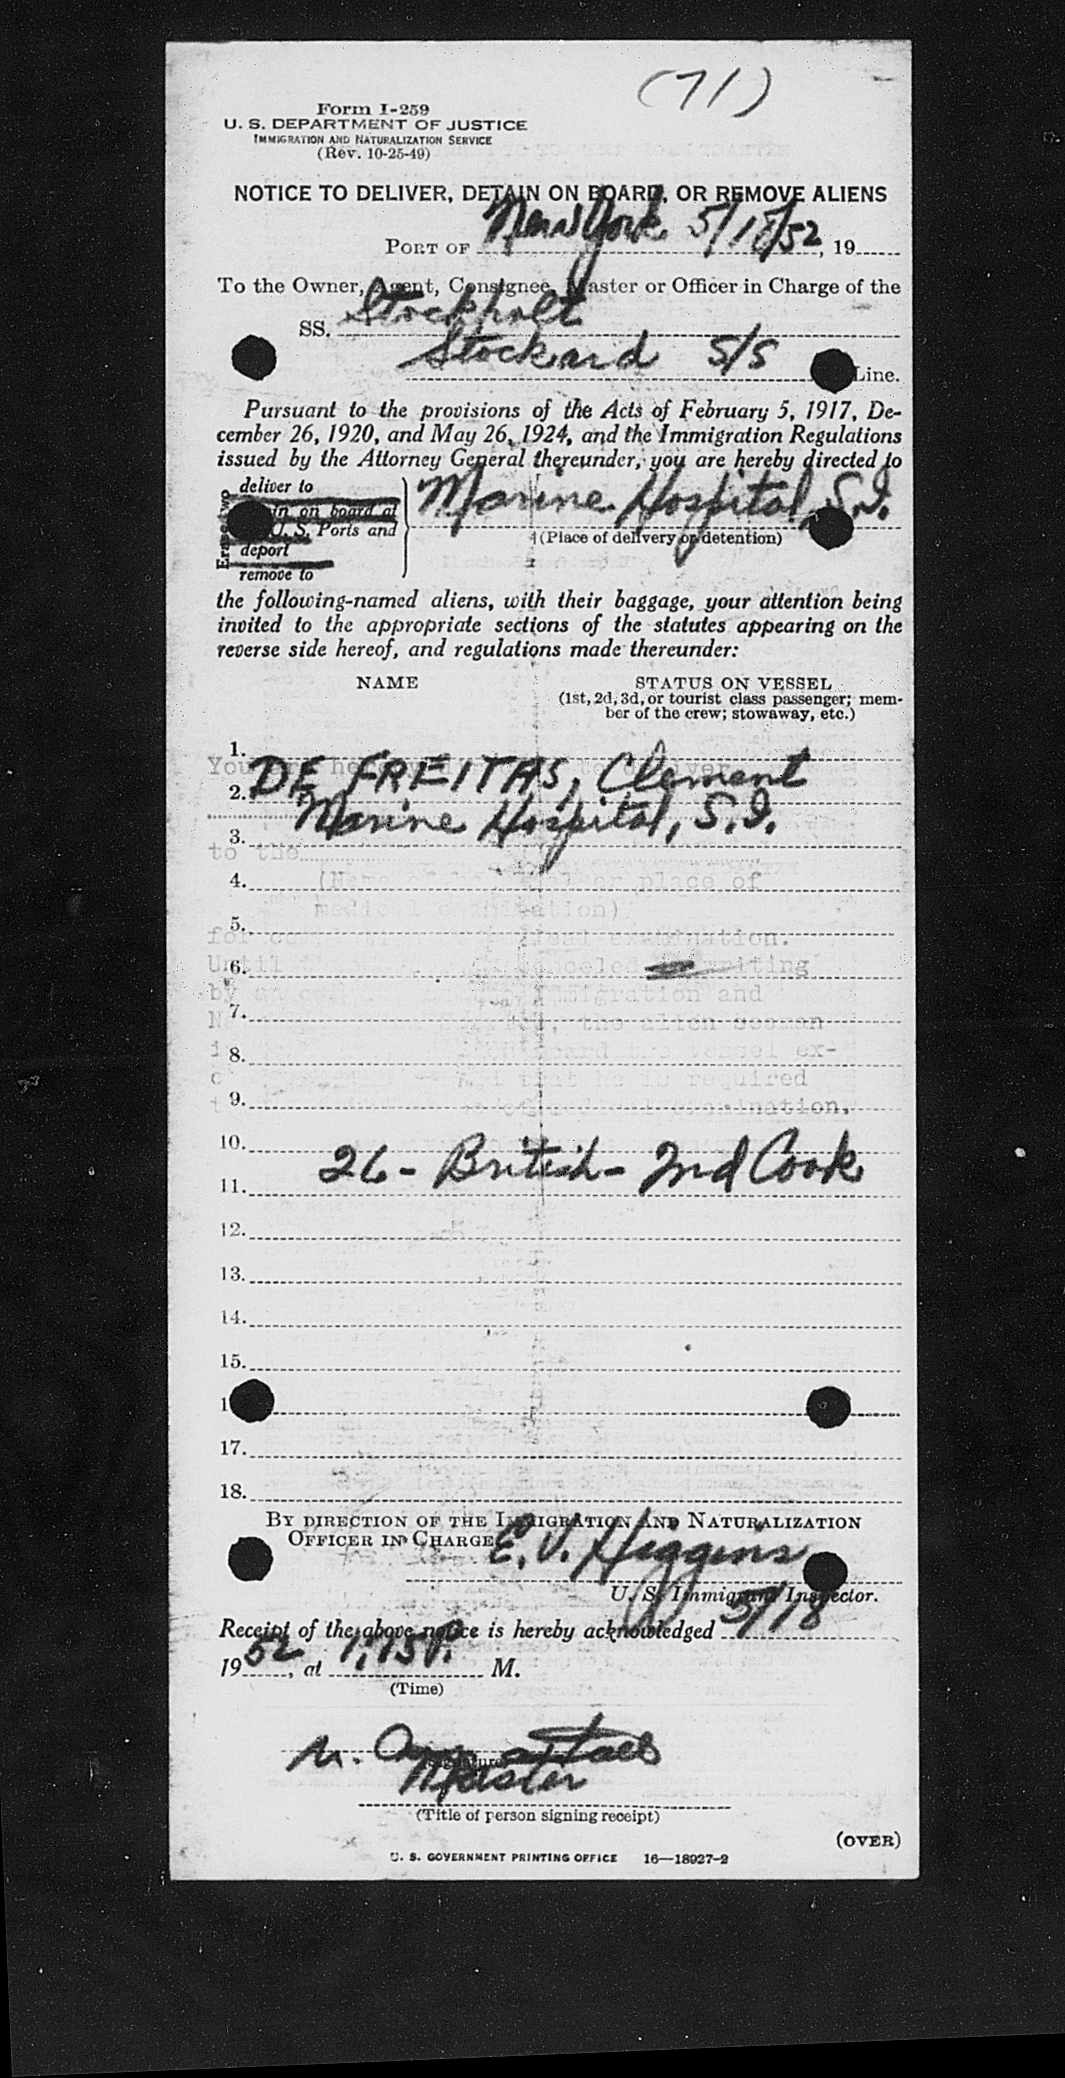 (71)
Form I-259
U. S. DEPARTMENT OF JUSTICE
IMMIGRATION AND NATURALIZATION SERVICE
(Rev. 10-25-49)
NOTICE TO DELIVER, DETAIN ON BOARD, OR REMOVE ALIENS
PORT OF New York 5/18/52, 19
To the Owner, Agent, Consignee, Master or Officer in Charge of the
SS. Stockholt
Stockard S/S Line.
Pursuant to the provisions of the Acts of February 5, 1917, De-
cember 26, 1920, and May 26, 1924, and the Immigration Regulations
issued by the Attorney General thereunder, you are hereby directed to
Erase two
deliver to
in on board at
U. S. Ports and
deport
remove to
Marine Hospital, S.I.
(Place of delivery or detention)
the following-named aliens, with their baggage, your attention being
invited to the appropriate sections of the statutes appearing on the
reverse side hereof, and regulations made thereunder:
NAME STATUS ON VESSEL
(1st, 2d, 3d, or tourist class passenger; mem-
ber of the crew; stowaway, etc.)
1.
DE FREITAS, Clement
2.
Marine Hospital, S.I.
3.
4.
5.
6.
7.
8.
9.
10.
26 - British - 2nd Cook
11.
12.
13.
14.
15.
1
17.
18.
BY DIRECTION OF THE IMMIGRATION AND NATURALIZATION
OFFICER IN CHARGE
E. V. Higgins
U. S. Immigrant Inspector.
Receipt of the above notice is hereby acknowledged 5/18
1952, at 1:15 P. M.
(Time)
Master
(Title of person signing receipt)
(OVER)
U. S. GOVERNMENT PRINTING OFFICE 16—18927-2